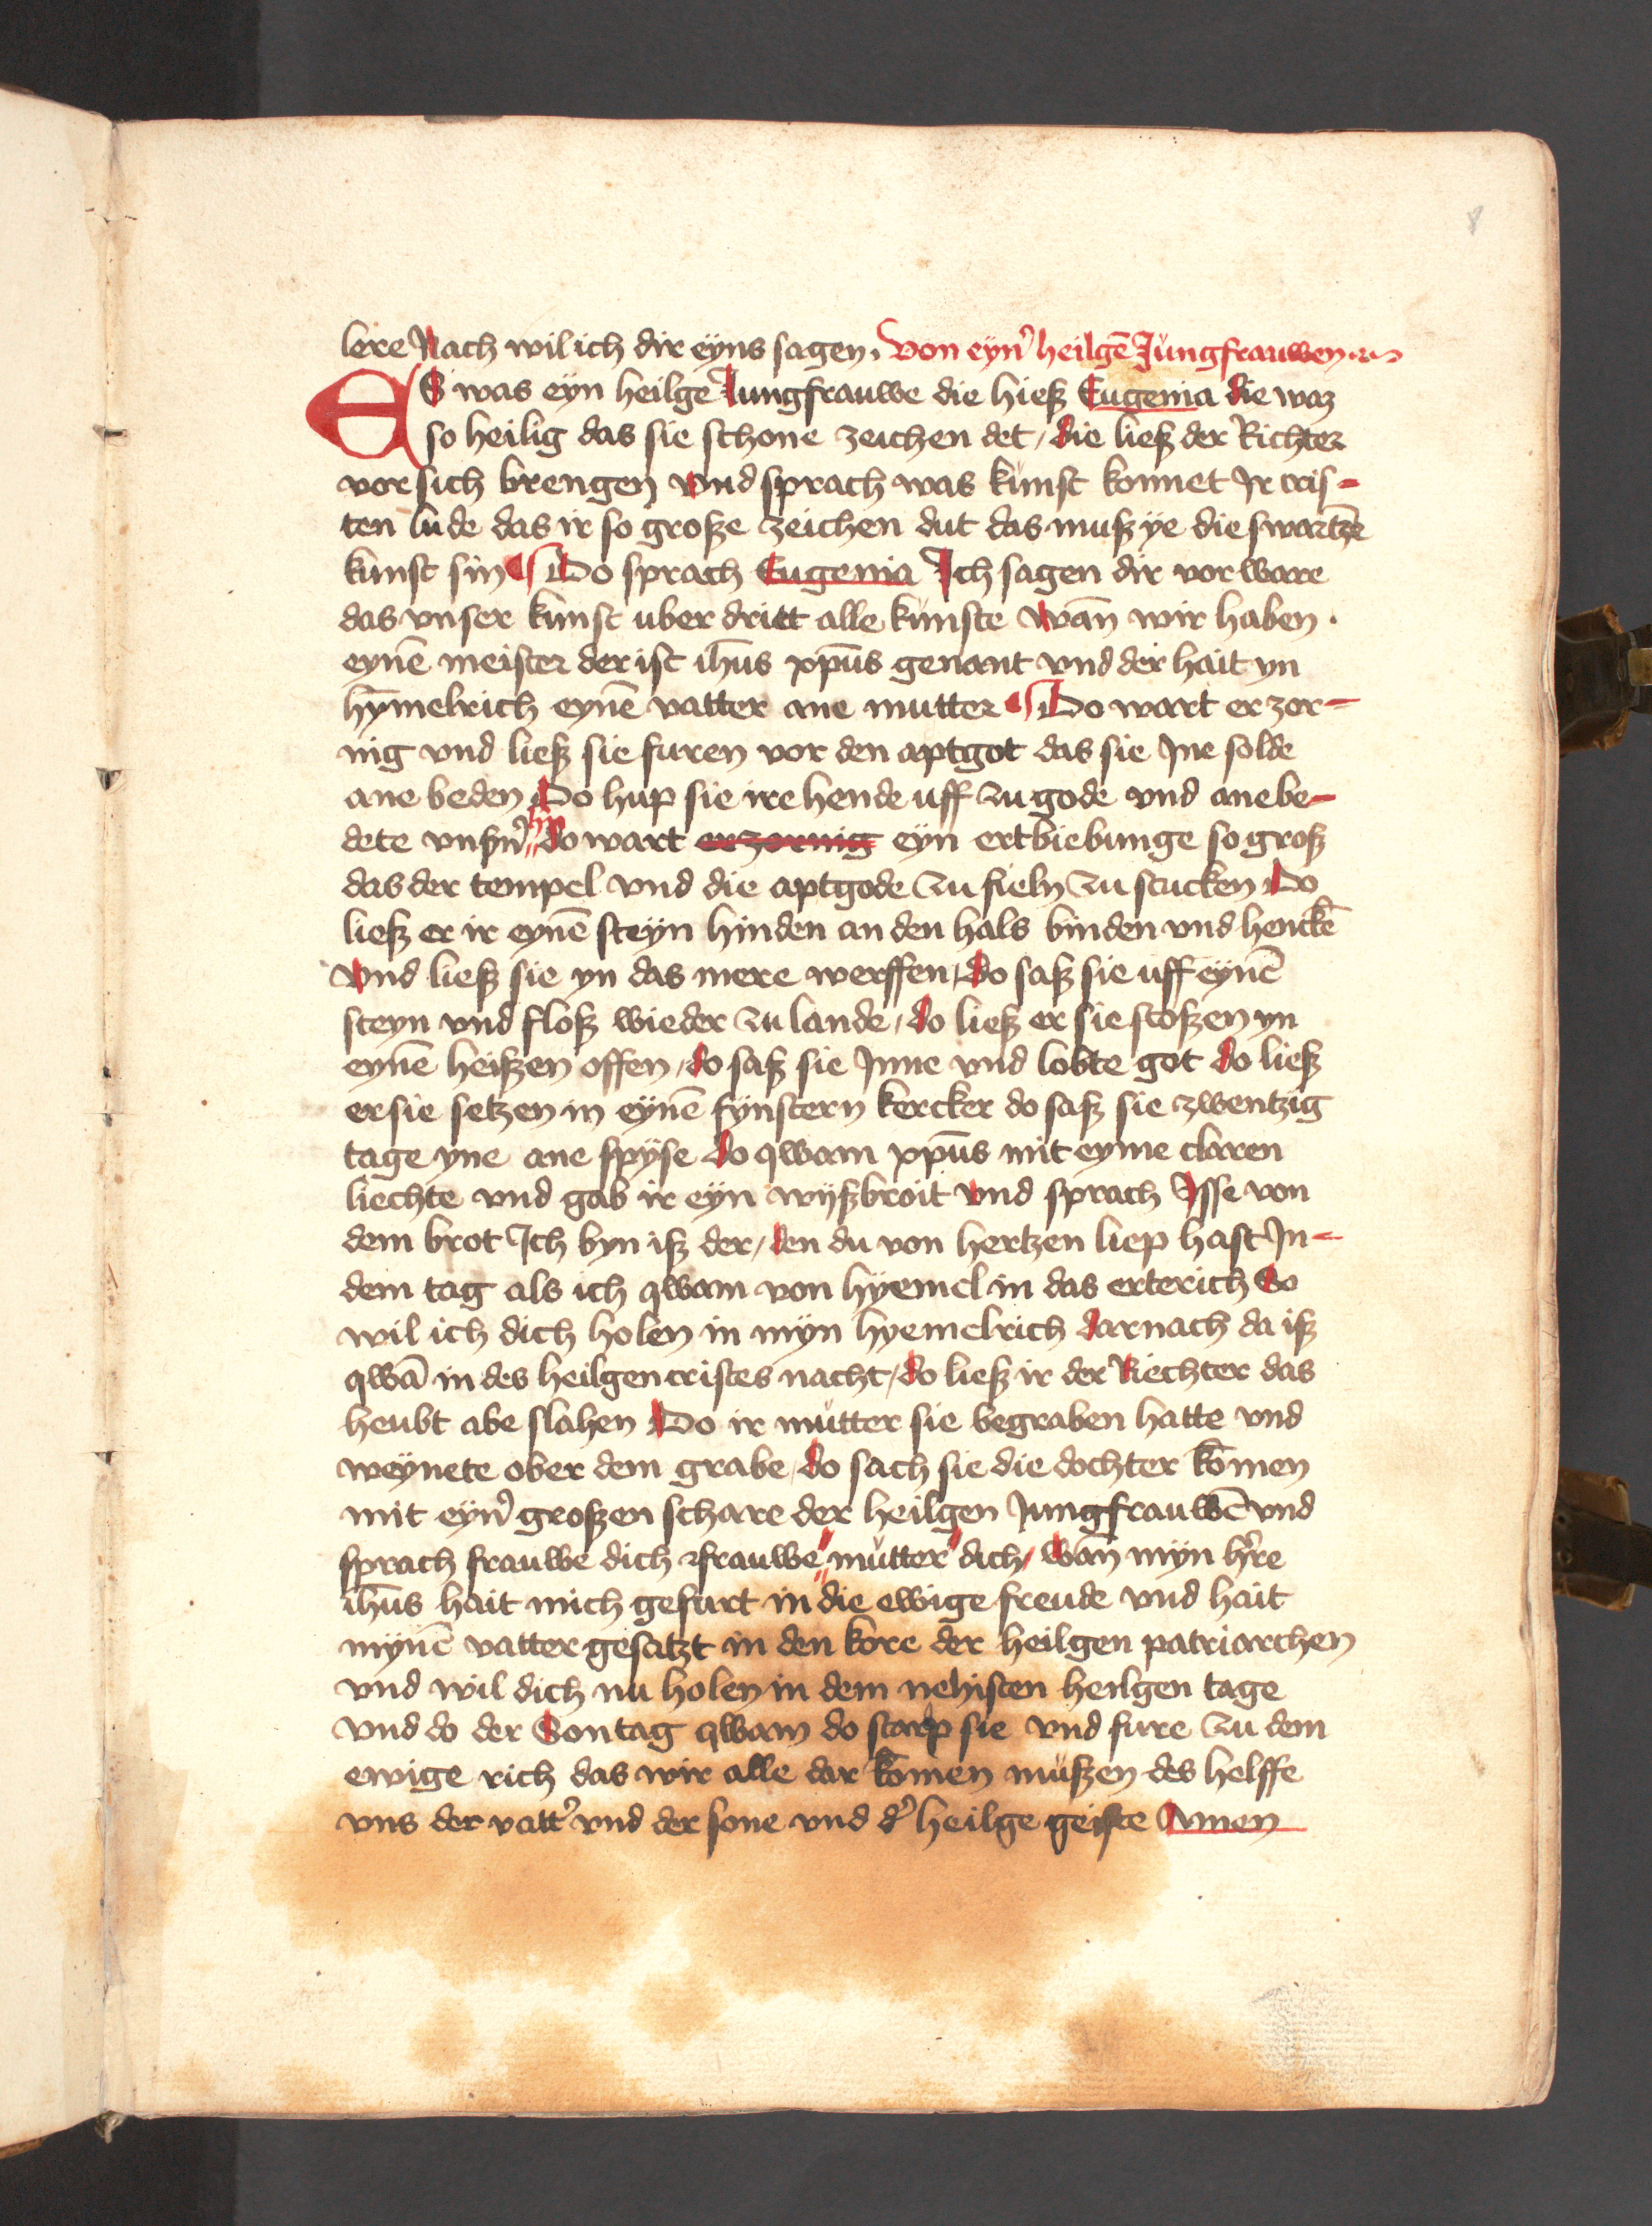 8
lere Nach wil ich dir eyns sagen. Von eyn̛ heilgē Jungfrauwen
ES was eyn heilge Jungfrauwe die hieß Eugenia die waz
so heilig das sie schone zeichen det / die ließ der Richter
vor sich brengen vnd sprach was kunst konnet Jr cris-
ten lude das ir so große zeichen dut das muß ye die swartze
kunst sin Do sprach Eugenia Ich sagen dir vorware
das vnser kunst uber dritt alle kunste wān wir haben .
eynē meister der ist ihūs xp̄us genant vnd der hait yn
hȳmelrich eynē vatter ane mutter Do wart er zor-
nig vnd ließ sie furen vor den aptgot das sie Jne solde
ane beden Do hup sie ire hende uff zu gode vnd anebe-
dete vnsn̛ hn̄ do wart er zornig eyn ertbiebunge so groß
das der tempel vnd die aptgode zu fieln zu stucken Do
ließ er ir eynē steyn hinden an den hals binden vnd henckē
vnd ließ sie yn das mere werffen / do saß sie uff eynē
steyn vnd floß wieder zu lande / do ließ er sie stoßen yn
eynē heißen offen / do saß sie Jnne vnd lobte got do ließ
er sie setzen in eynē fynstern kercker do saß sie zwentzig
tage yne ane spyse do qwam xp̄us mit eyme claren
liechte vnd gab ir eyn wyßbroit vnd sprach Jsse von
dem brot Ich byn iß der / den du von hertzen liep hast Jn-
dem tag als ich qwam von hyemel in das erterich So
wil ich dich holen in myn hyemelrich darnach da iß
qwā in des heilgen cristes nacht / do ließ ir der Riechter das
heubt abe slahen Do ir mutter sie begraben hatte vnd
weynete ober dem grabe / do sach sie die dochter kōmen
mit eyn̛ großen schare der heilgen Jungfrauwē vnd
sprach frauwe dich frauwe mutter dich / wān myn h̛re
ihūs hait mich gefurt in die ewige freude vnd hait
mynē vatter gesatzt in den kore der heilgen patriarchen
vnd wil dich nu holen in dem nehisten heilgen tage
vnd do der Sontag qwam do starp sie vnd fure zu dem
ewige rich das wir alle dar kōmen mußen des helffe
vns der vatt̛ vnd der sone vnd d̛ heilge geiste Amen